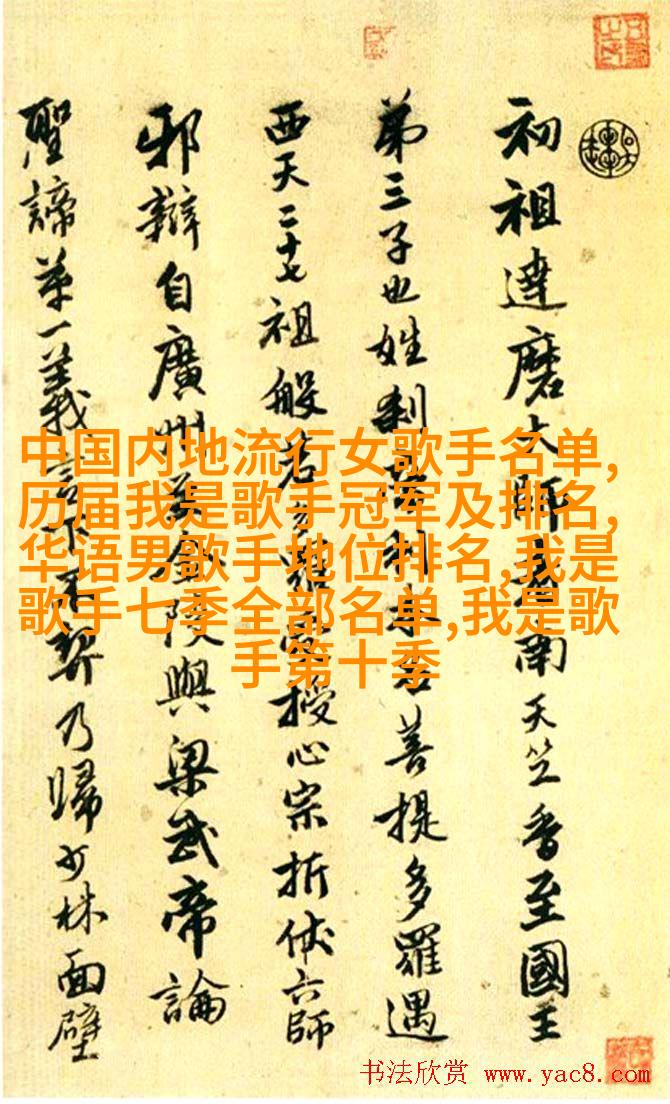 初祖達磨大師南天竺香至國王
弟三子也姓刹利本名菩提多羅遇
西天二十七祖般若多羅授心宗折伏六師
邪辯自廣州金陵與梁武帝論
聖諦第一義言下不契乃歸少林面壁
中国内地流行女歌手名单,
历届我是歌手冠军及排名,
华语男歌手地位排名,我是
歌手七季全部名单,我是歌
手第十季
书法欣赏 www.yac8.com